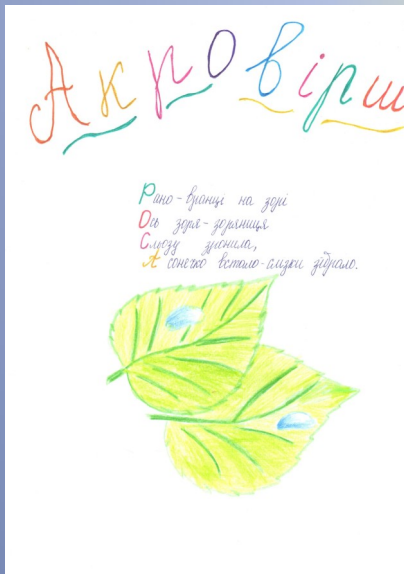 Акровірш
Рано-вранці на зорі
Ось зоря-зоряниця
Сльозу зронила,
А сонечко встало-слизки зібрало.